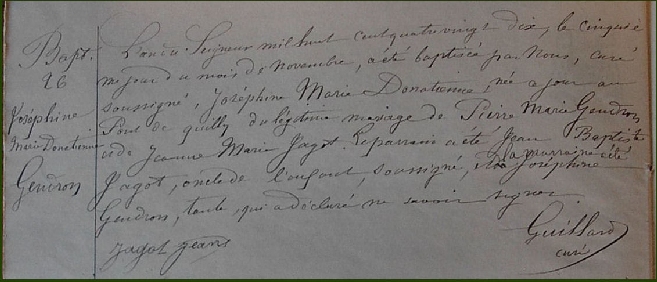 Bapt.
26
Joséphine
Marie Donatienne
Gendron
L'an du Seigneur mil huit cent quatre vingt dix, le cinquiè
me jour du mois de Novembre, a été baptisée par Nous, curé
soussigné, Joséphine Marie Donatienne, née ce jour au
Pont de guilly du légitime mariage de Pierre Marie Gendron
et de Jeanne Marie Jagot. Le parrain a été Jean Baptiste
Jagot, oncle de l'enfant, soussigné, la marraine été Joséphine
Gendron, tante, qui a déclaré ne savoir signer.
Jagot Jean
Guillard
curé